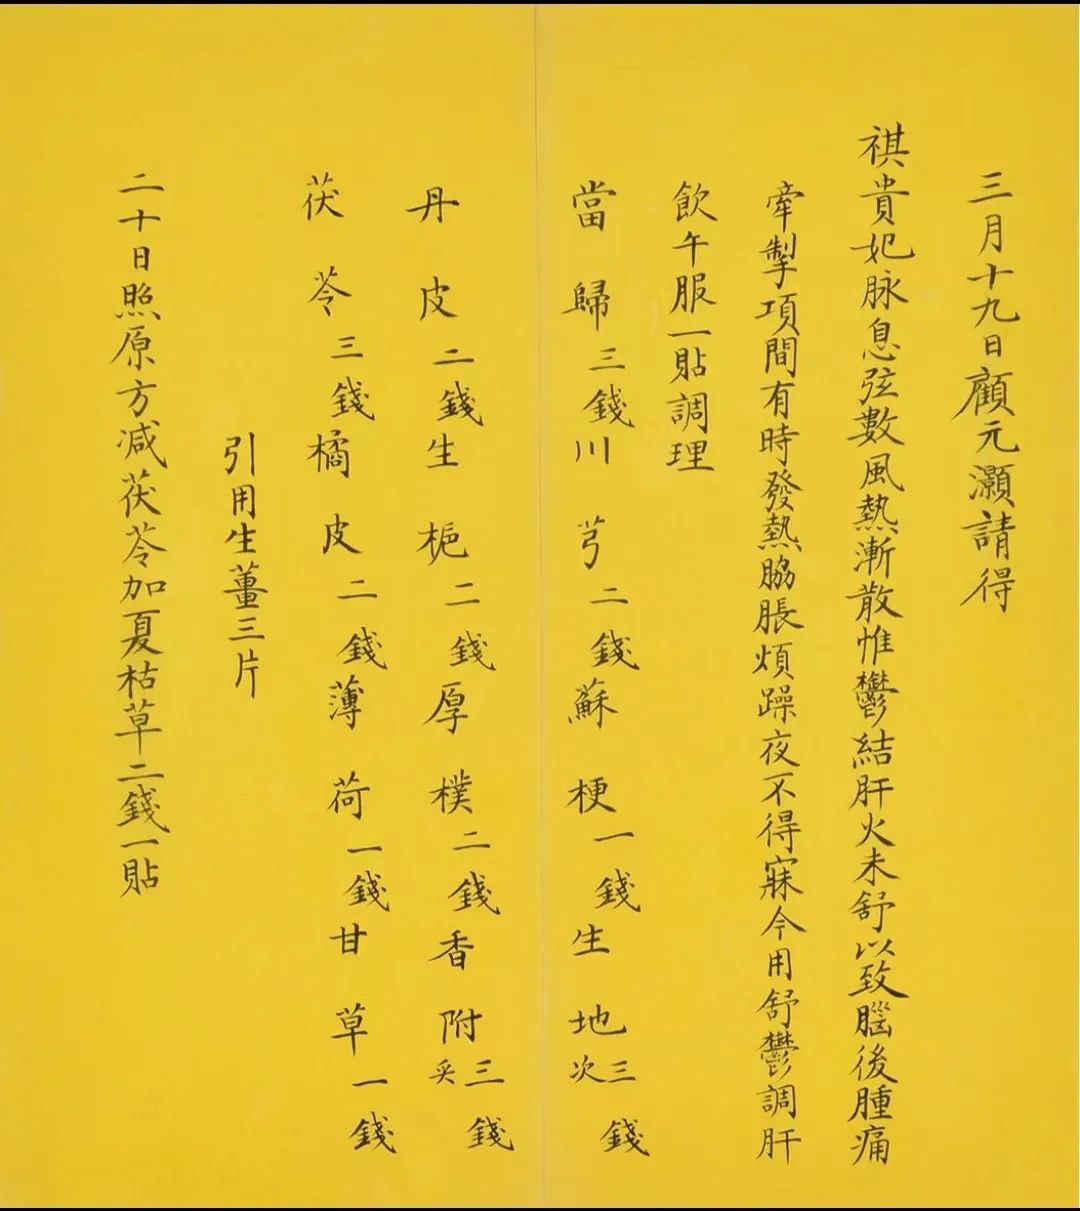 三月十九日顧元灝請得
祺貴妃脉息弦數風熱漸散惟鬱結肝火未舒以致腦後腫痛
牽掣項間有時發熱脇脹煩躁夜不得寐今用舒鬱調肝
飲午服一貼調理
當歸三錢川芎二錢蘇梗一錢生地次三錢
丹皮二錢生梔二錢厚樸二錢香附炙三錢
茯苓三錢橘皮二錢薄荷一錢甘草一錢
引用生薑三片
二十日照原方减茯苓加夏枯草二錢一貼